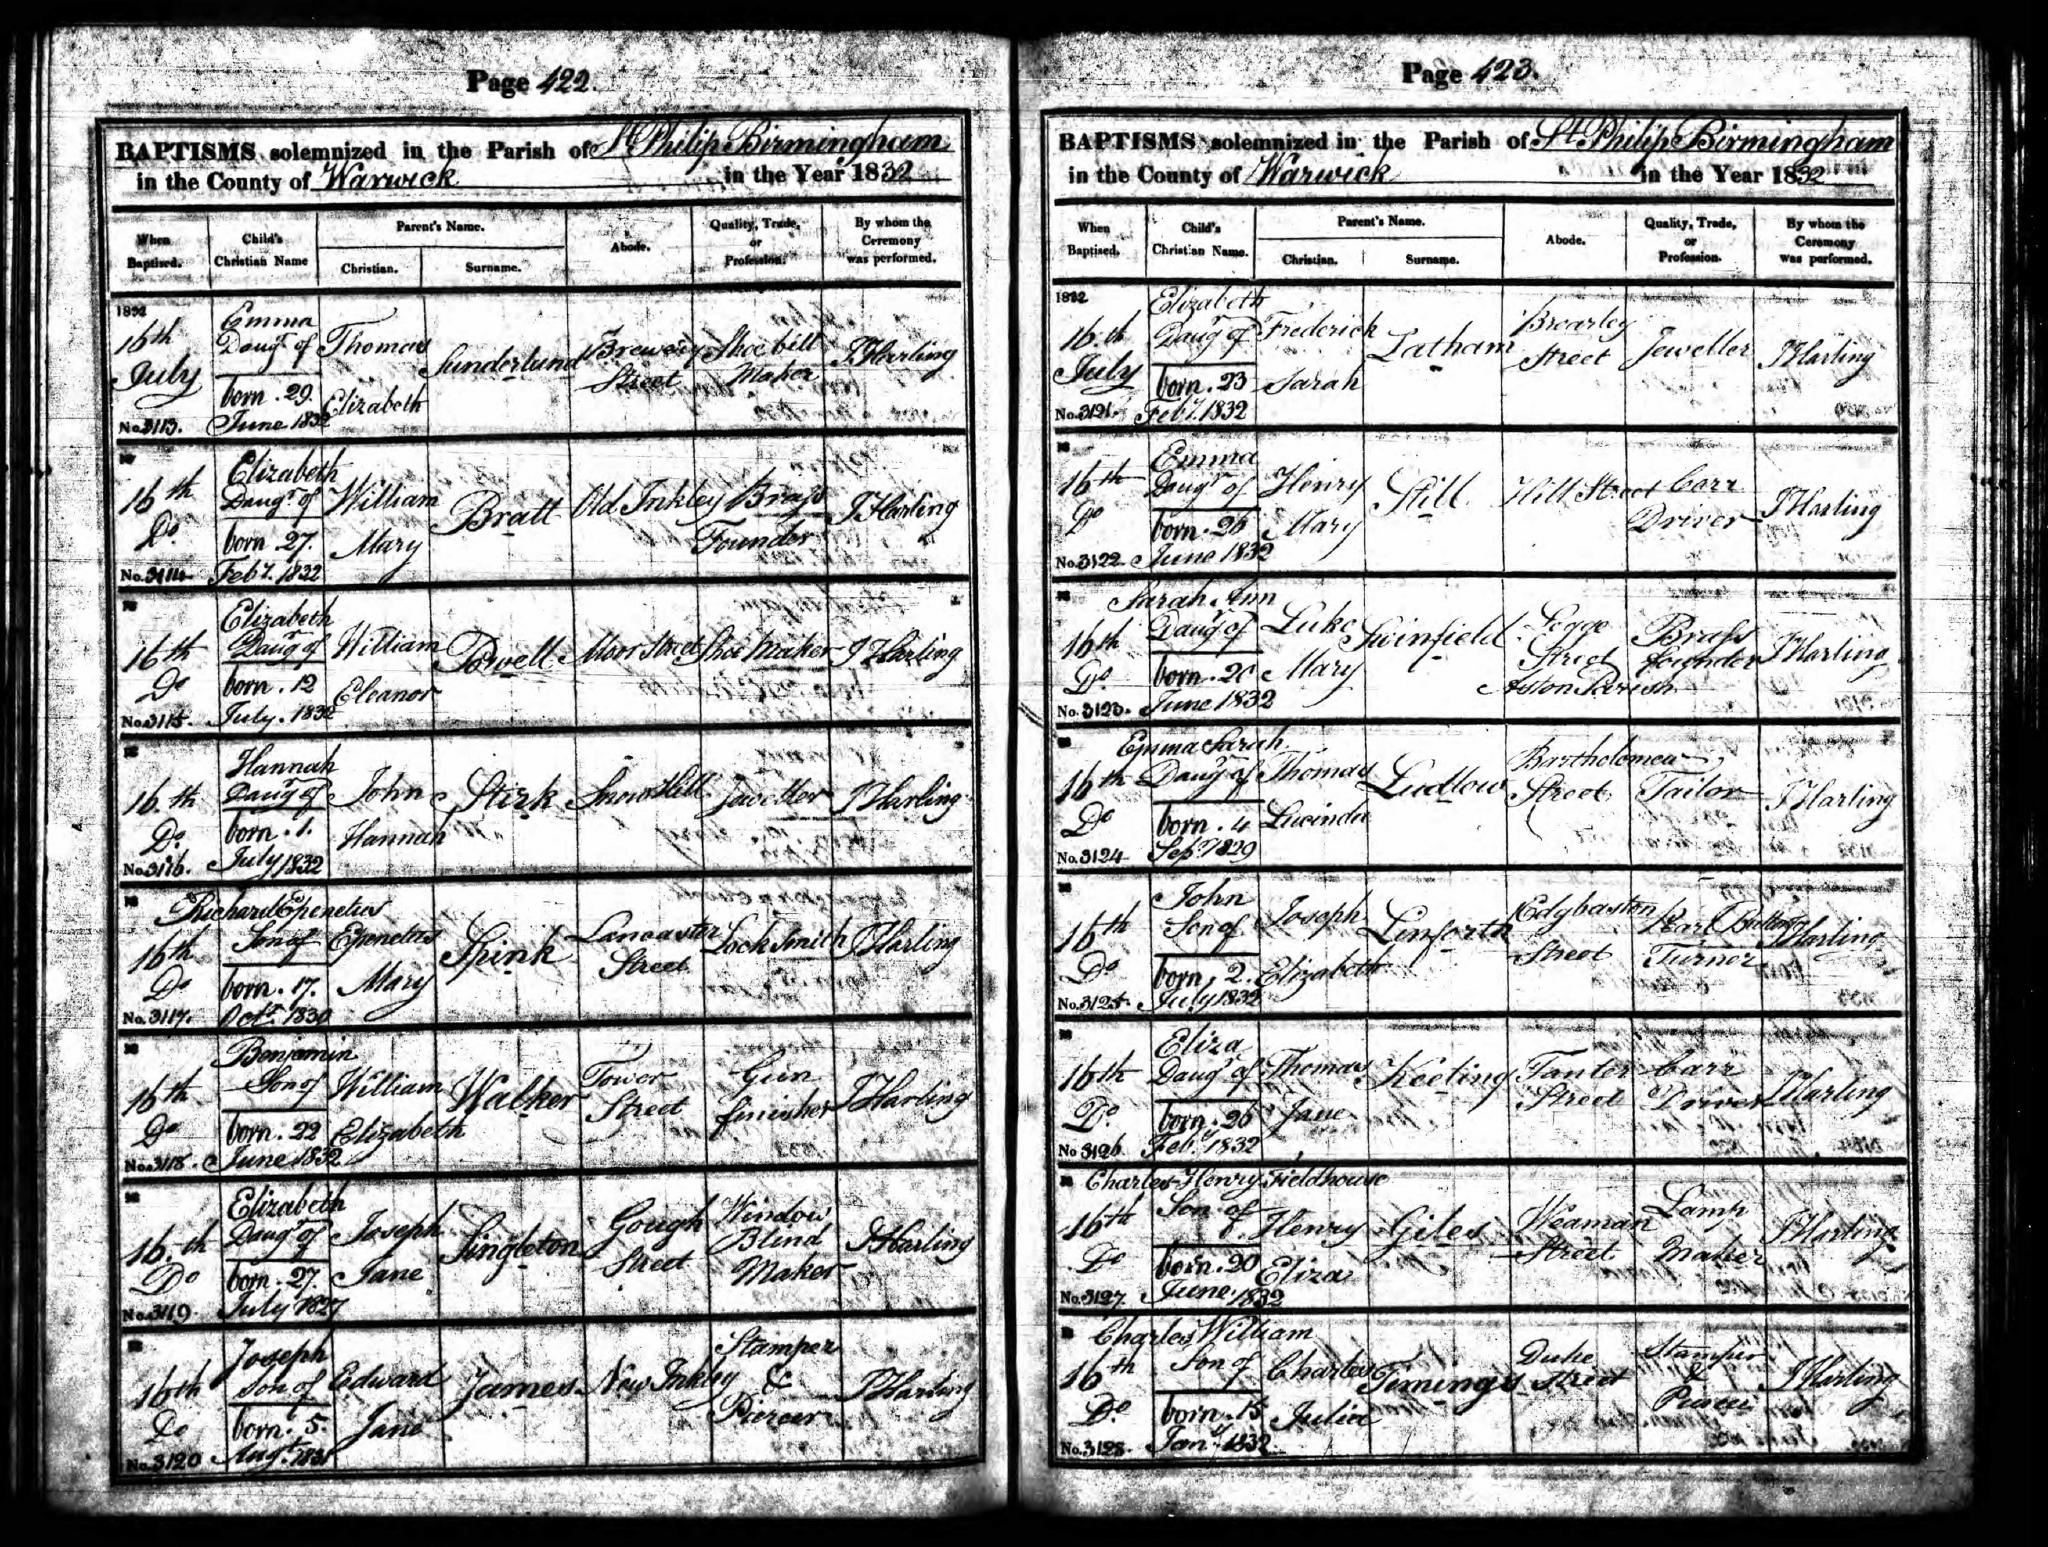 Page 422.
BAPTISMS solemnized in the Parish of St Philip Birmingham
in the County of Warwick in the Year 1832
When Baptised. Child's Christian Name Parent's Name. Christian. Surname. Abode. Quality, Trade, or Profession. By whom the Ceremony was performed.
1832
16th July
No. 3113.
Emma
Daugr of
born. 29.
June 1832
Thomas
Elizabeth
Sunderland
Brewery
Street
Shoe bill
Maker
J Harling
16th
Do
No. 3114
Elizabeth
Daugr of
born. 27.
Feby. 1832
William
Mary
Bratt
Old Inkley
Brass
Founder
J Harling
16th
Do
No. 3115.
Elizabeth
Daugr of
born. 12
July. 1832
William
Eleanor
Powell
Moor Street
Shoe Maker
J Harling
16th
Do.
No. 3116.
Hannah
Daugr of
born. 1.
July 1832
John
Hannah
Stirk
Snow Hill
Jeweller
J Harling
16th
Do
No. 3117.
Richard Epenetus
Son of
born. 17.
Octr. 1830
Epenetus
Mary
Spink
Lancaster
Street
Lock Smith
J Harling
16th
Do
No. 3118.
Benjamin
Son of
born. 22
June 1832
William
Elizabeth
Walker
Tower
Street
Gun
finisher
J Harling
16th
Do
No. 3119
Elizabeth
Daugr of
born. 27.
July 1827
Joseph
Jane
Singleton
Gough
Street
Window
Blind
Maker
J Harling
16th
Do
No. 3120
Joseph
Son of
born. 5.
Augt. 1831
Edward
Jane
James
New Inkley
Stamper
&
Piercer
J Harling
Page 423.
BAPTISMS solemnized in the Parish of St Philip Birmingham
in the County of Warwick in the Year 1832
When Baptised. Child's Christian Name. Parent's Name. Christian. Surname. Abode. Quality, Trade, or Profession. By whom the Ceremony was performed.
1832
16th
July
No. 3121.
Elizabeth
Daugr of
born. 23
Feby. 1832
Frederick
Sarah
Latham
Brearley
Street
Jeweller
J Harling
16th
Do
No. 3122
Emma
Daugr of
born. 26
June 1832
Henry
Mary
Still
Hill Street
Carr
Driver
J Harling
16th
Do.
No. 3123.
Sarah Ann
Daugr of
born. 20
June 1832
Luke
Mary
Swinfield
Legge
Street
Aston Parish
Brass
founder
J Harling
16th
Do
No. 3124
Emma Sarah
Daugr of
born. 4
Sepr 1829
Thomas
Lucinda
Ludlow
Bartholomew
Street
Tailor
J Harling
16th
Do
No. 3125.
John
Son of
born. 2.
July 1832
Joseph
Elizabeth
Linforth
Edgbaston
Street
Pearl Button
Turner
J Harling
16th
Do.
No 3126
Eliza
Daugr of
born. 26
Feby. 1832
Thomas
Jane
Keeting
Tanter
Street
Carr
Driver
J Harling
16th
Do
No. 3127.
Charles Henry Fieldhouse
Son of
born. 20
June. 1832
Henry
Eliza
Giles
Weaman
Street
Lamp
Maker
J Harling
16th
Do.
No. 3128.
Charles William
Son of
born. 15
Jany. 1832
Charles
Julia
Timings
Duke
Street
Stamper
&
Piercer
J Harling